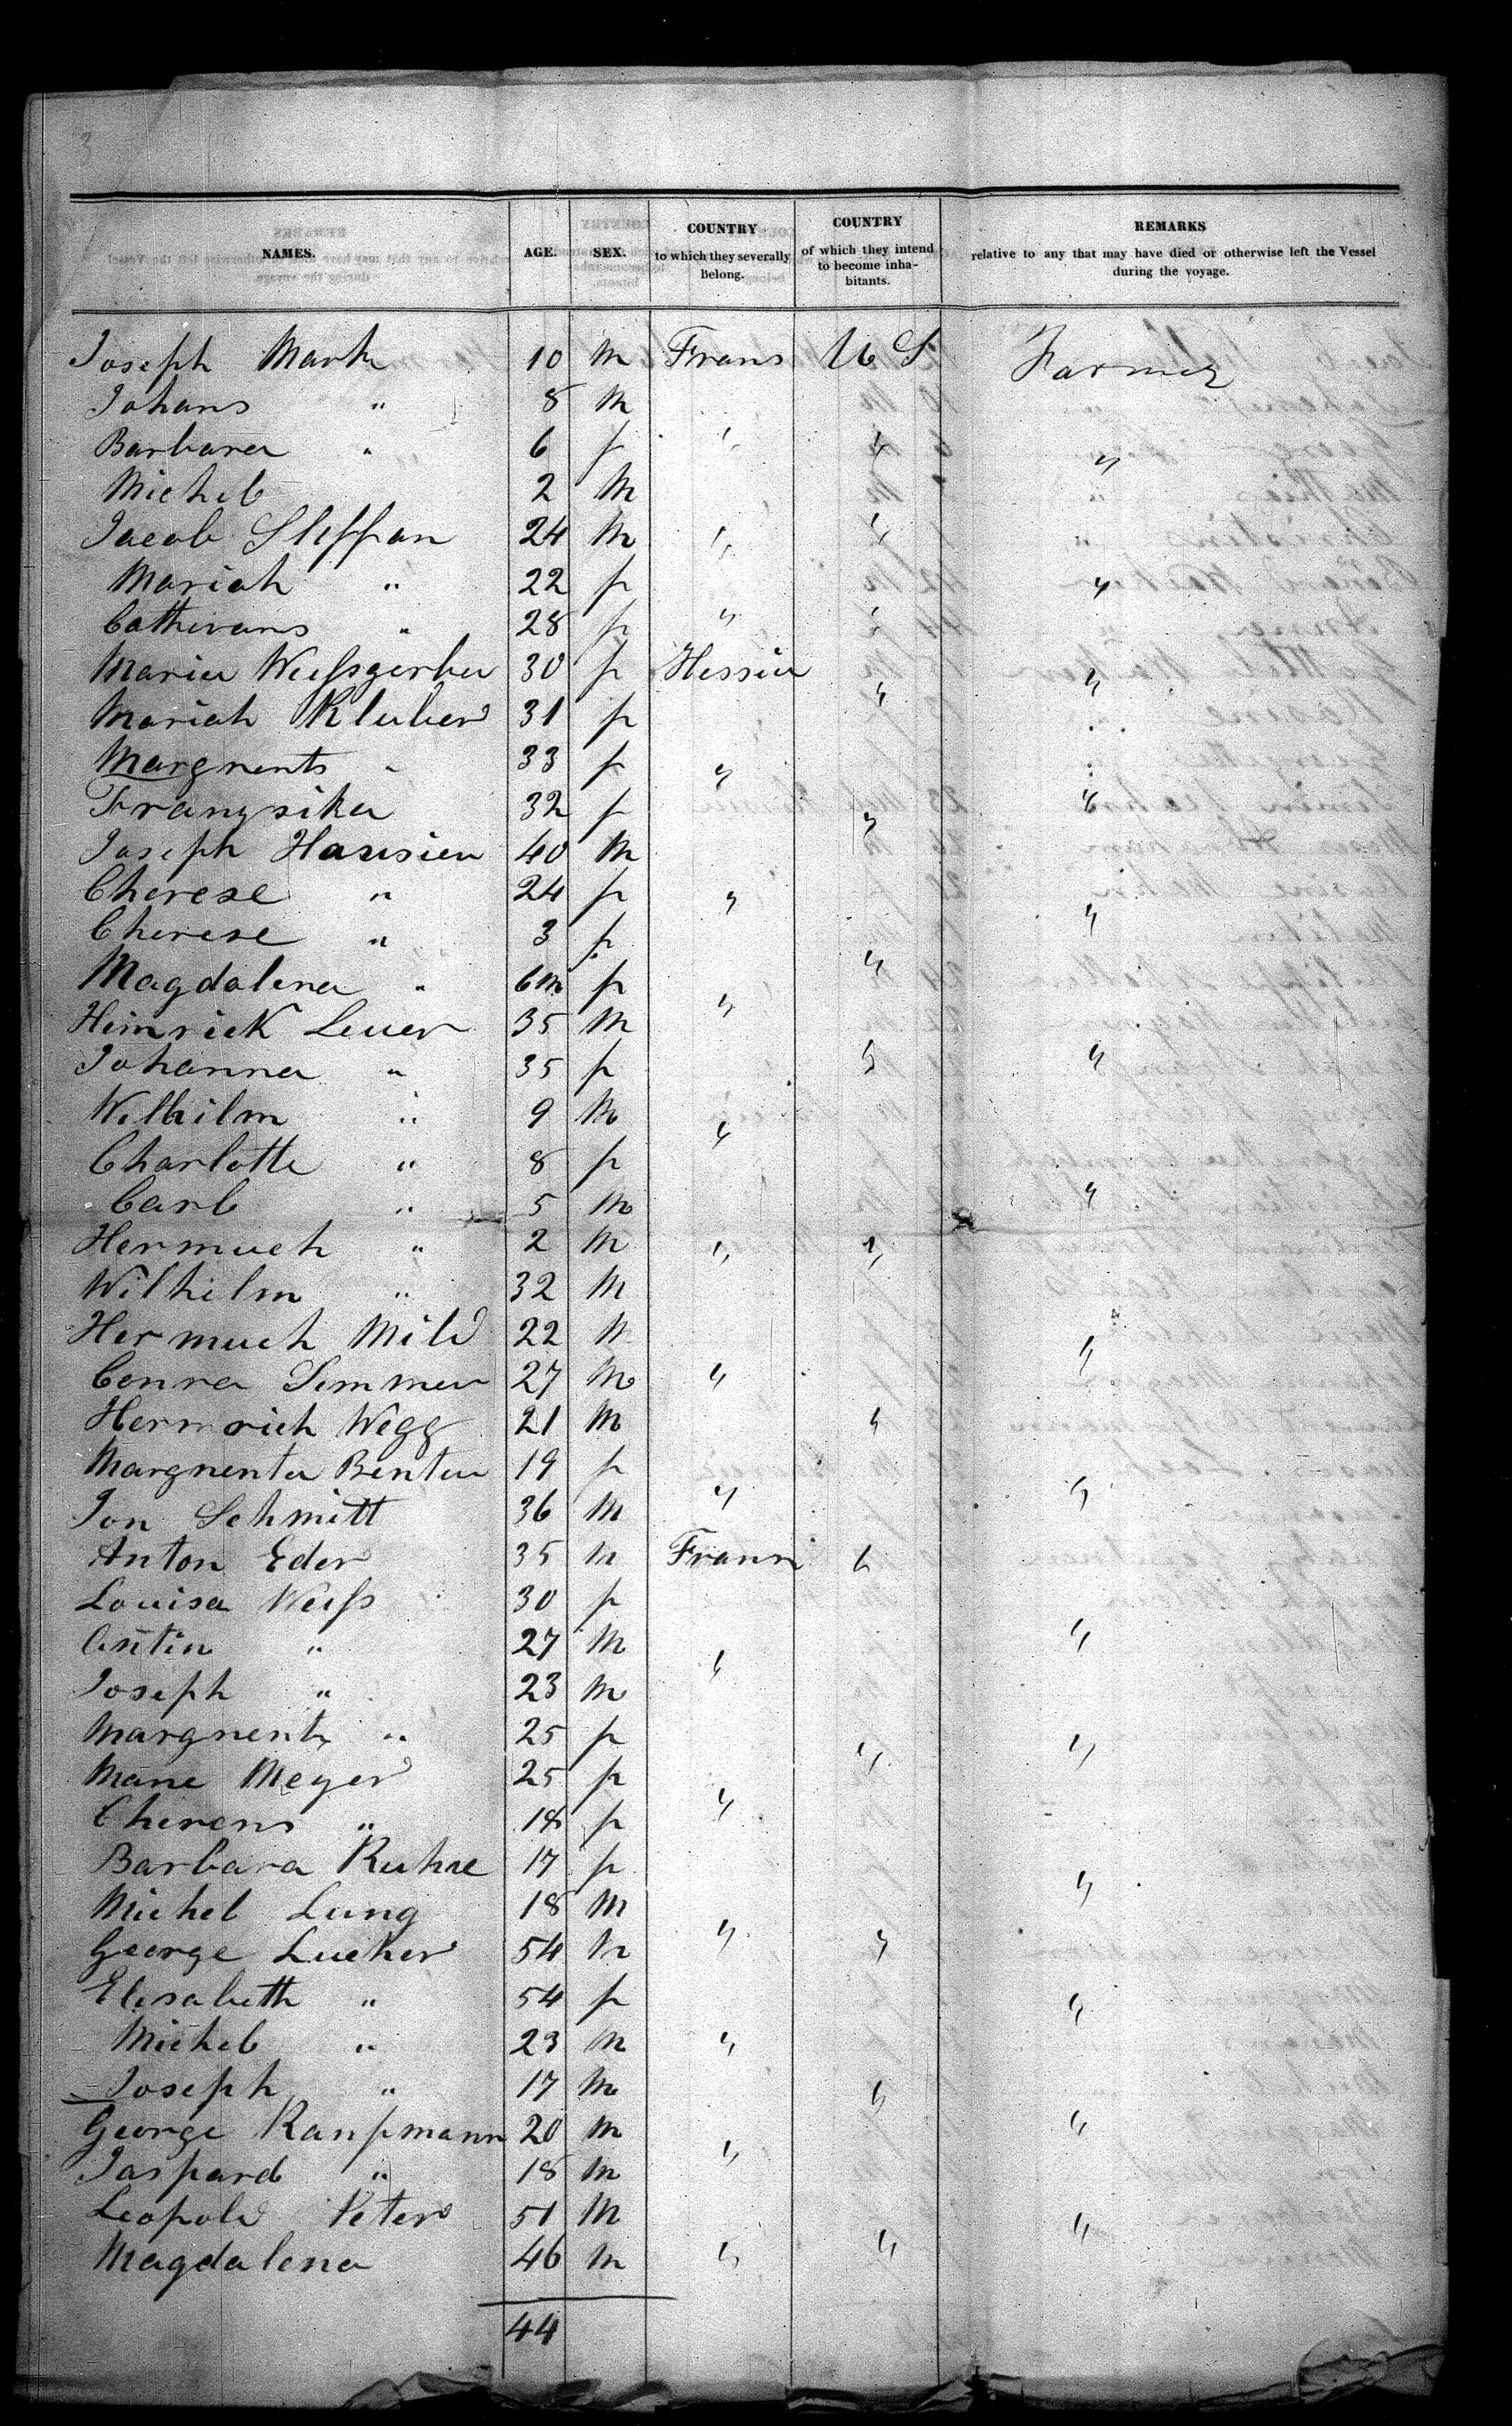 3
NAMES. AGE. SEX. COUNTRY to which they severally belong. COUNTRY of which they intend to become inhabitants. REMARKS relative to any that may have died or otherwise left the Vessel during the voyage.
Joseph Mark 10 m Frans U S Farmer
Johans " 8 m
Barbara " 6 f " " "
Michel 2 m
Jacob Steffan 24 m " "
Mariah " 22 f "
Cathirans " 28 f " "
Maria Weissgerber 30 f Hessia " "
Mariah Kluber 31 f
Margrents " 33 f "
Frangsika 32 f " "
Joseph Haussien 40 m
Therese " 24 f " "
Therese " 3 f
Magdalena " 6m f " "
Heinrick Leuer 35 m
Johanna " 35 f " "
Wilhilm " 9 m "
Charlotte " 8 f
Carl " 5 m "
Hermuch " 2 m " "
Wilhelm " 32 m
Hermuch Mild 22 m "
Conra Semmer 27 m "
Hermrich Wegg 21 m "
Margrenta Benter 19 f "
Jon Schmitt 36 m "
Anton Eder 35 m Frann "
Louisa Weiss 30 f
Antin " 27 m "
Joseph " 23 m "
Margrenta " 25 f " "
Marie Meyer 25 f
Therens " 18 f "
Barbara Kuhne 17 f
Michel Lung 18 m "
George Lucker 54 m " "
Elisabeth " 54 f "
Michel " 23 m "
Joseph " 17 m "
George Kaufmann 20 m "
Jaspard " 18 m "
Leopold Peter 51 m "
Magdalena 46 m " "
44